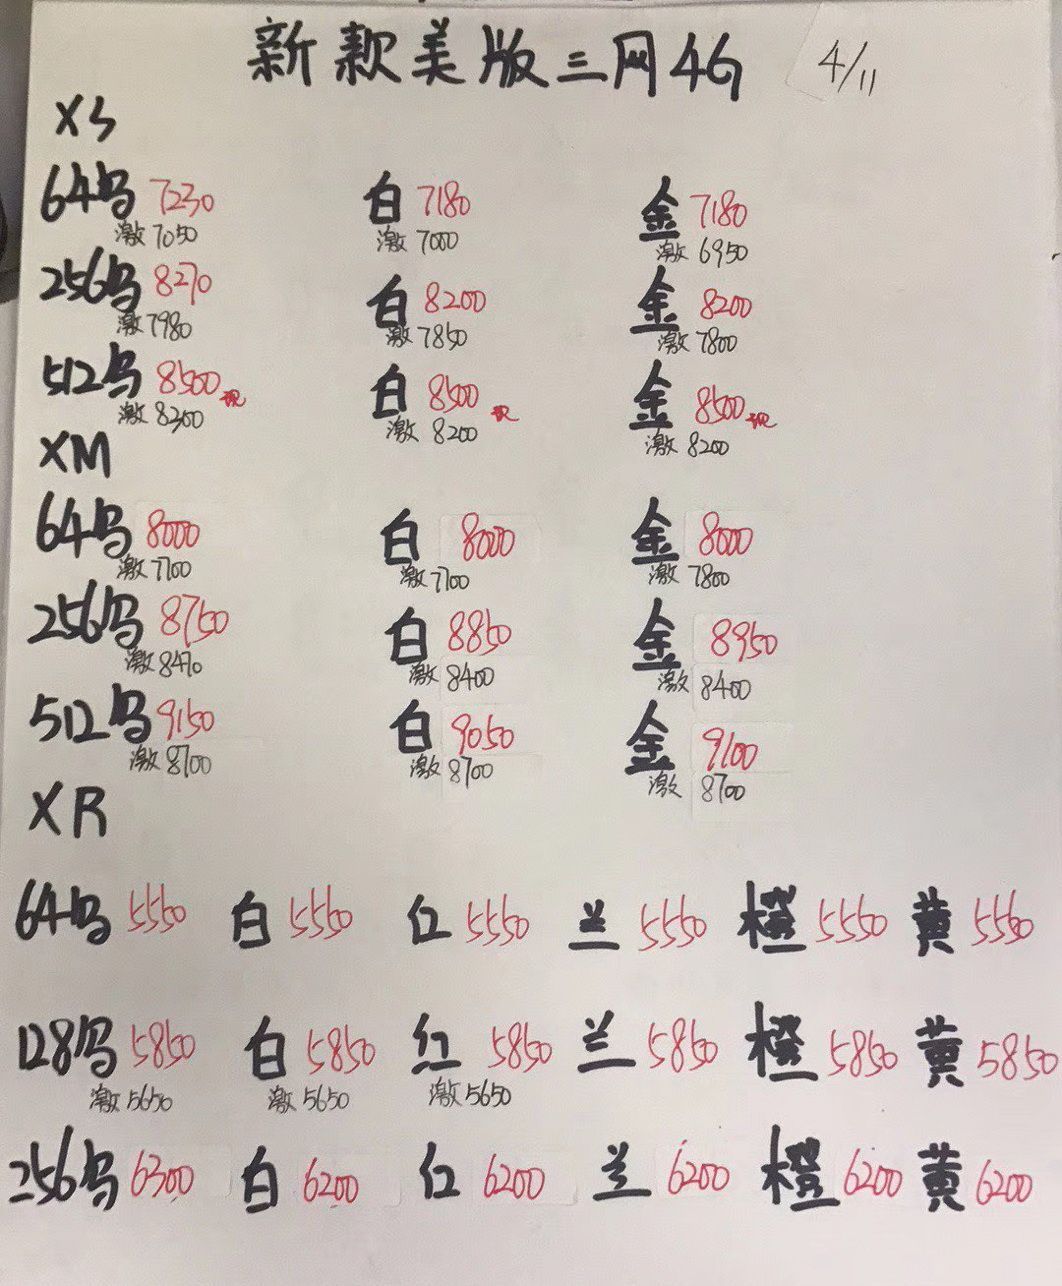 新款美版三网4G 4/11
XS
64乌 7230 白 7180 金 7180
激 7050 激 7000 激 6950
256乌 8270 白 8200 金 8200
激 7980 激 7850 激 7800
512乌 8500 现 白 8500 现 金 8500 现
激 8300 激 8200 激 8200
XM
64乌 8000 白 8000 金 8000
激 7700 激 7700 激 7800
256乌 8750 白 8850 金 8950
激 8470 激 8400 激 8400
512乌 9150 白 9050 金 9100
激 8700 激 8700 激 8700
XR
64乌 5550 白 5550 红 5550 兰 5550 橙 5550 黄 5550
128乌 5850 白 5850 红 5850 兰 5850 橙 5850 黄 5850
激 5650 激 5650 激 5650
256乌 6300 白 6200 红 6200 兰 6200 橙 6200 黄 6200